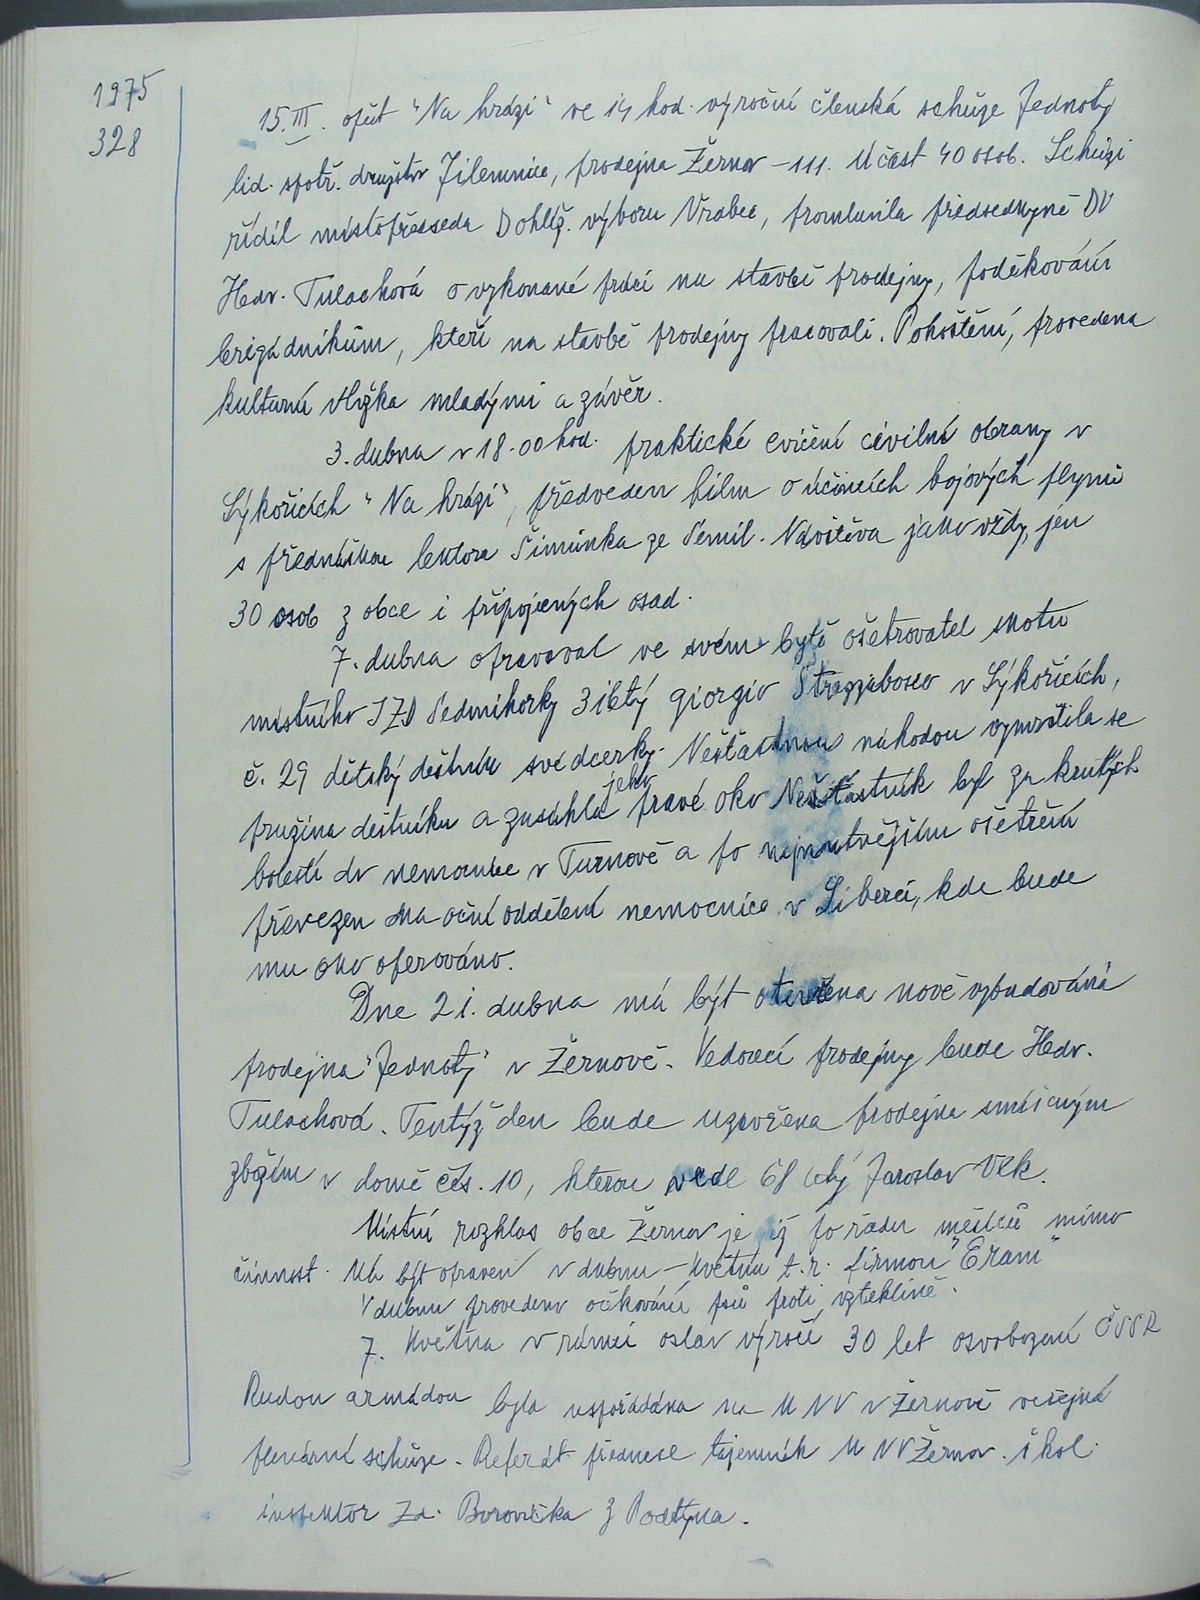 1975
328
15. III. opět "Na hrázi" ve 14 hod. výroční členská schůze Jednoty
lid. spotř. družstev Jilemnice, prodejna Žernov - 111. Účast 40 osob. Schůzi
řídil místopředseda Dohlíž. výboru Vrabec, promluvila předsedkyně DV
Hedv. Tulachová o vykonané práci na stavbě prodejny, poděkování
brigádníkům, kteří na stavbě prodejny pracovali. Pohoštění, provedena
kulturní vložka mladými a závěr.
3. dubna v 18.00 hod. praktické cvičení civilní obrany v
Sýkořicích "Na hrázi", předveden film o účincích bojových plynů
s přednáškou lektora Šimůnka ze Semil. Návštěva jako vždy, jen
30 osob z obce i připojených osad.
7. dubna opravoval ve svém bytě ošetřovatel skotu
místního JZD Sedmihorky 31letý Giorgio v Sýkořicích,
č. 29 dětský deštník své dcerky. Nešťastnou náhodou vymrštila se
pružina deštníku a zasáhla jeho pravé oko Nešťastník byl za krutých
bolestí do nemocnice v Turnově a po nejnutnějším ošetření
převezen na oční oddělení nemocnice v Liberci, kde bude
mu oko operováno.
Dne 21. dubna má být otevřena nově vybudovaná
prodejna "Jednoty" v Žernově. Vedoucí prodejny bude Hedv.
Tulachová. Tentýž den bude uzavřena prodejna smíšeným
zbožím v domě čís. 10, kterou vedl 68 letý Jaroslav Vlk.
Místní rozhlas obce Žernov je již po řadu měsíců mimo
činnost. Má být opraven v dubnu - květnu t.r. firmou "Eram"
V dubnu provedeno očkování psů proti vzteklině.
7. května v rámci oslav výročí 30 let osvobození ČSSR
Rudou armádou byla uspořádána na MNV v Žernově veřejná
plenární schůze. Referát přednesl tajemník MNV Žernov. škol.
inspektor Zd. Borovička z Rodtýna.